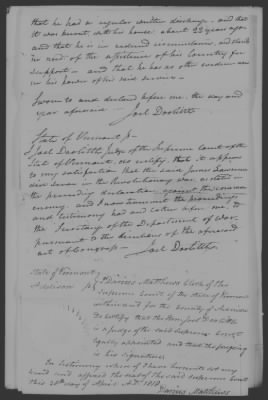 that he had a regular written discharge, - and that
it was burnt, with his house about 23 years ago
and that he is in reduced circumstances, and stands
in need of the assistance of his Country for
support - and that he has no other evidence now
in his power of his said services -
Sworn to and declared before me, the day and
year aforesaid - Joel Doolittle
State of Vermont ss
I Joel Doolittle Judge of the Supreme Court of the
State of Vermont, do certify, that it appears
to my satisfaction that the said James Lawrence
did serve in the Revolutionary War as stated in
the preceding declaration against the common
enemy - and I now transmit the proceedings
and testimony had and taken before me, to
the Secretary of the Department of War
pursuant to the directions of the aforesaid
act of Congress - Joel Doolittle
State of Vermont
Addison ss I Darius Matthews Clerk of the
Supreme Court of the State of Vermont
within and for the County of Addison
Do certify that the Hon. Joel Doolittle
is a Judge of the said Supreme Court
legally appointed and that the foregoing
is his signature
In testimony whereof I have hereunto set my
hand and affixed the seal of the said supreme court
this 20th day of April A.D. 1818
Darius Matthews